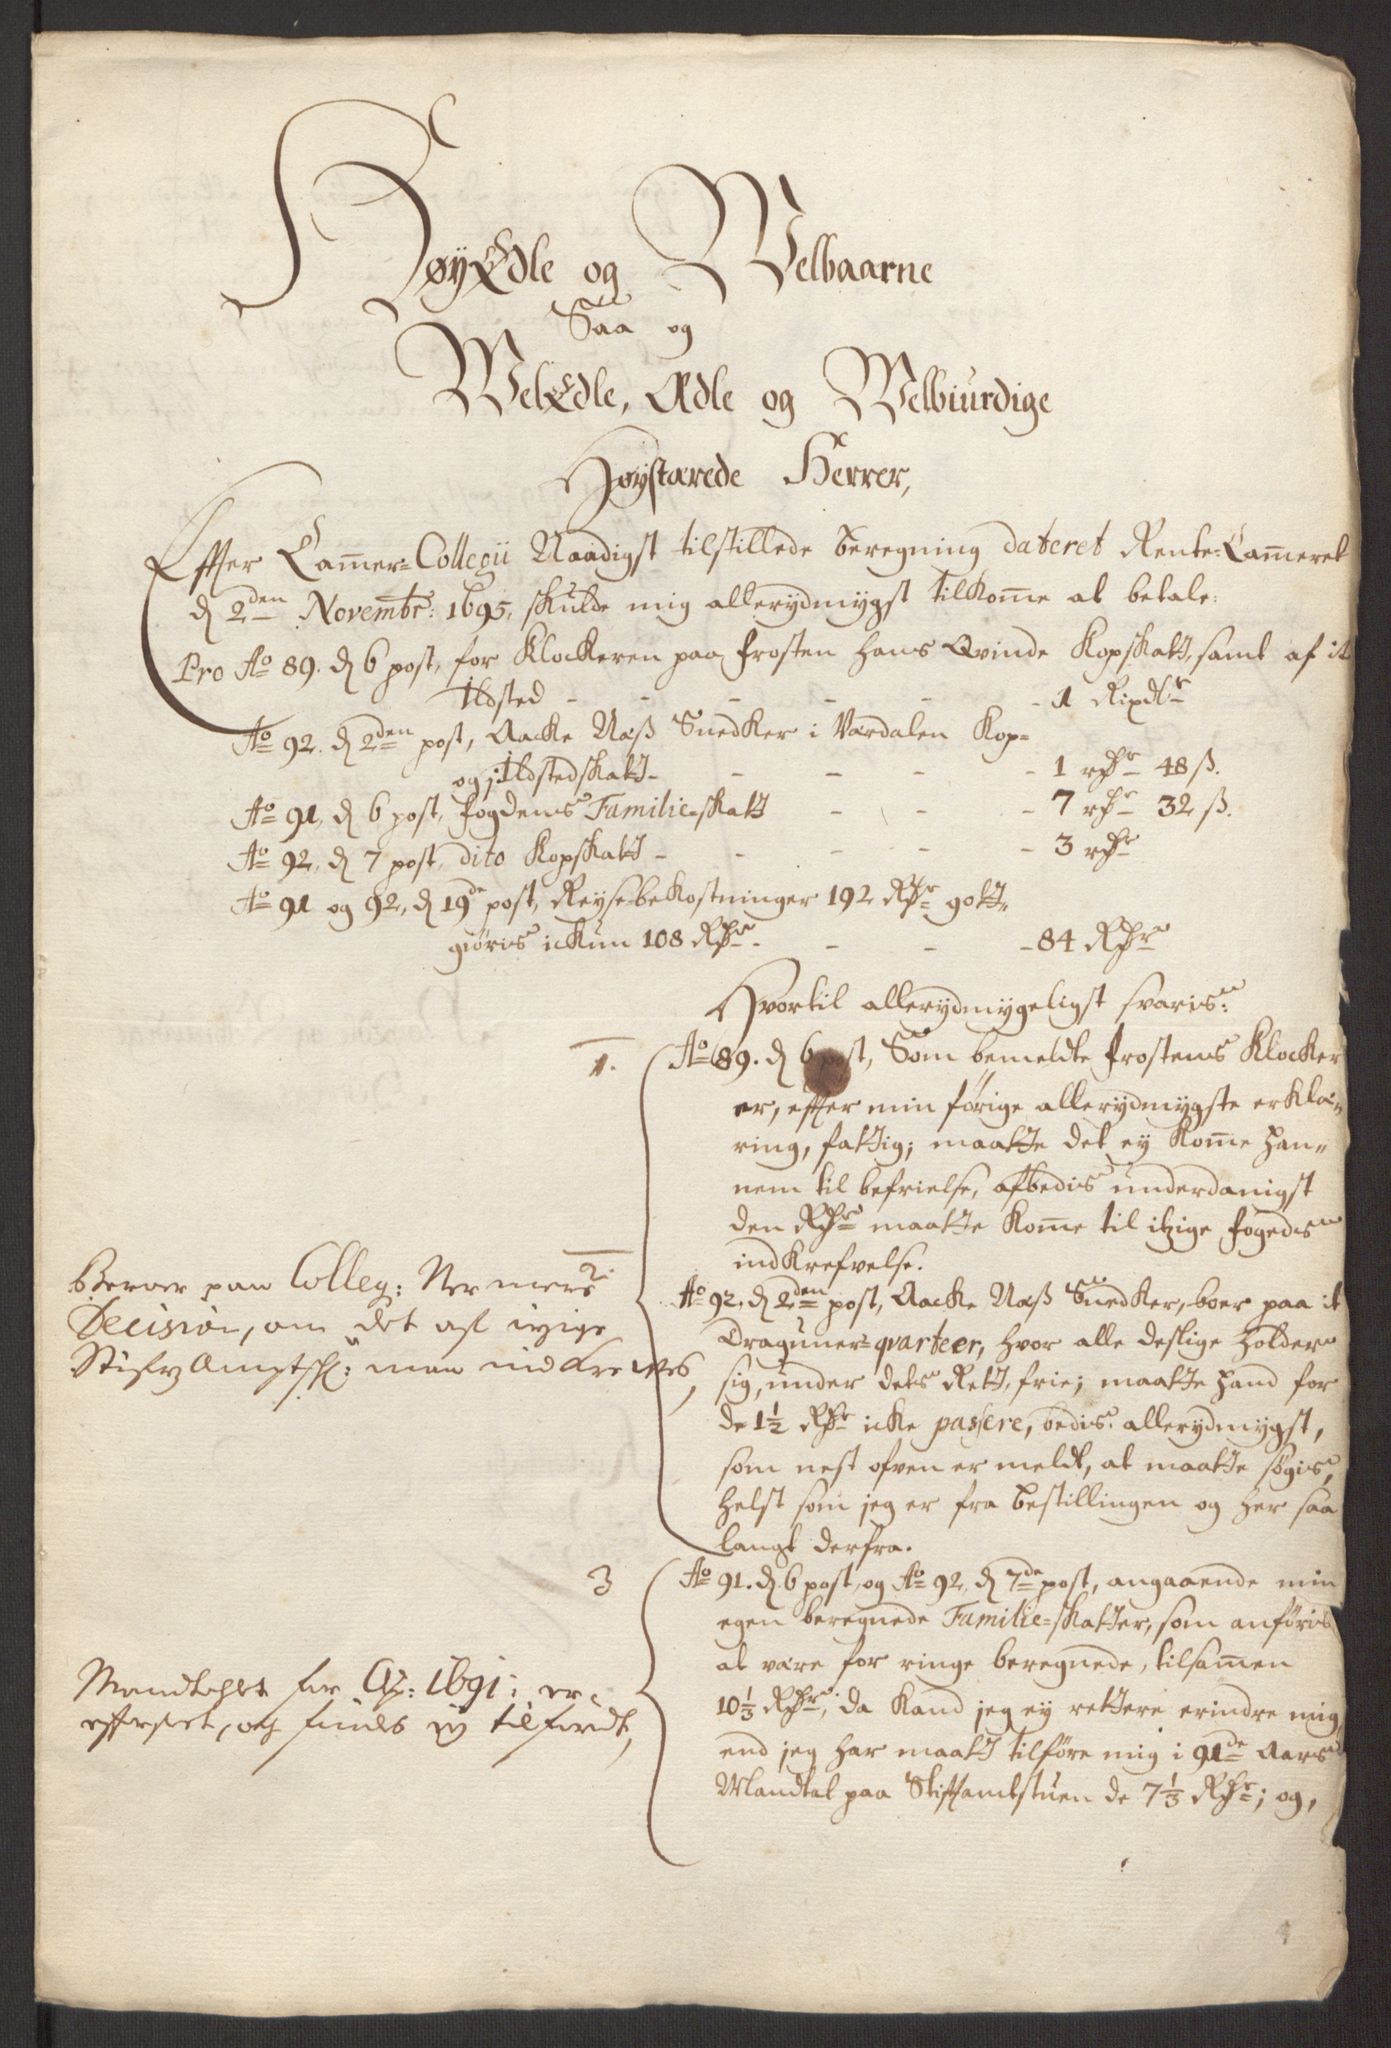 HøyEdle og Welbaarne
Saa og
WelEdle, Ædle og Welbiurdige
Høystærede Herrer,
Effter Cam̄er=Collegii Naadigst tilstillede beregning dateret Rente=Cam̄eret
d 2den Novembr: 1695, skulde mig allerydmygst tilkom̄e at betale:
Pro Ao 89. d 6 post, for Klockeren paa Frosten hans Qvinde Kopskatt, samt af it
Ildsted - - - - - 1 Rixdlr
Ao 92. d 2den post, Aacke Næß Snedker i Værdalen Kop=
og Ildstedskatt - - - - 1 rdr 48 ß.
Ao 91, d 6 post, fogdens Familie=skatt - - - 7 rdr 32 ß.
Ao 92, d 7 post, dito Kopskatt - - - - - 3 rdr
Ao 91 og 92, d 19de post, Reysebekostninger 192 Rdr gott-
giøris ickun 108 Rdr - - - 84 Rdr
Hvortil allerydmygeligst svaris:
1. Ao 89. d 6 post, Som bemeldte Frostens Klocker
er, effter min førige allerydmygste erklæ=
ring, fattig; maatte det ey kom̄e han=
nem til befrielse, afbedis underdanigst
den Rdr maatte kom̄e til itzige fogeds
indkrefvelse.
2. Ao 92, d 2den post, Aacke Næß Snedker, boer paa it
Draguner=qvarteer, hvor alle deslige holder
sig, under dets Rett, frie; maatte hand for
de 1½ Rdr icke passere, bedis allerydmygst,
som nest ofven er meldt, at maatte søgis,
helst som jeg er fra bestillingen og her saa
langt derfra.
Beroer paa Colleg: Nermere
Decision, om det af itzige
Stiftz Amptsk: maa indkrewes,
3 Ao 91. d 6 post, og Ao 92, d 7de post, angaaende min
egen beregnede Familie=skatter, som anføris
at være for ringe beregnede, tilsam̄en
10⅓ Rdr; da kand jeg ey rettere erindre mig,
end jeg har maatt tilføre mig i 91de Aars
Mandtal paa Stiftamtstuen de 7⅓ Rdr; og,
Mandtahlet for Ao: 1691: er
effterseet, og findes ey tilfördt,